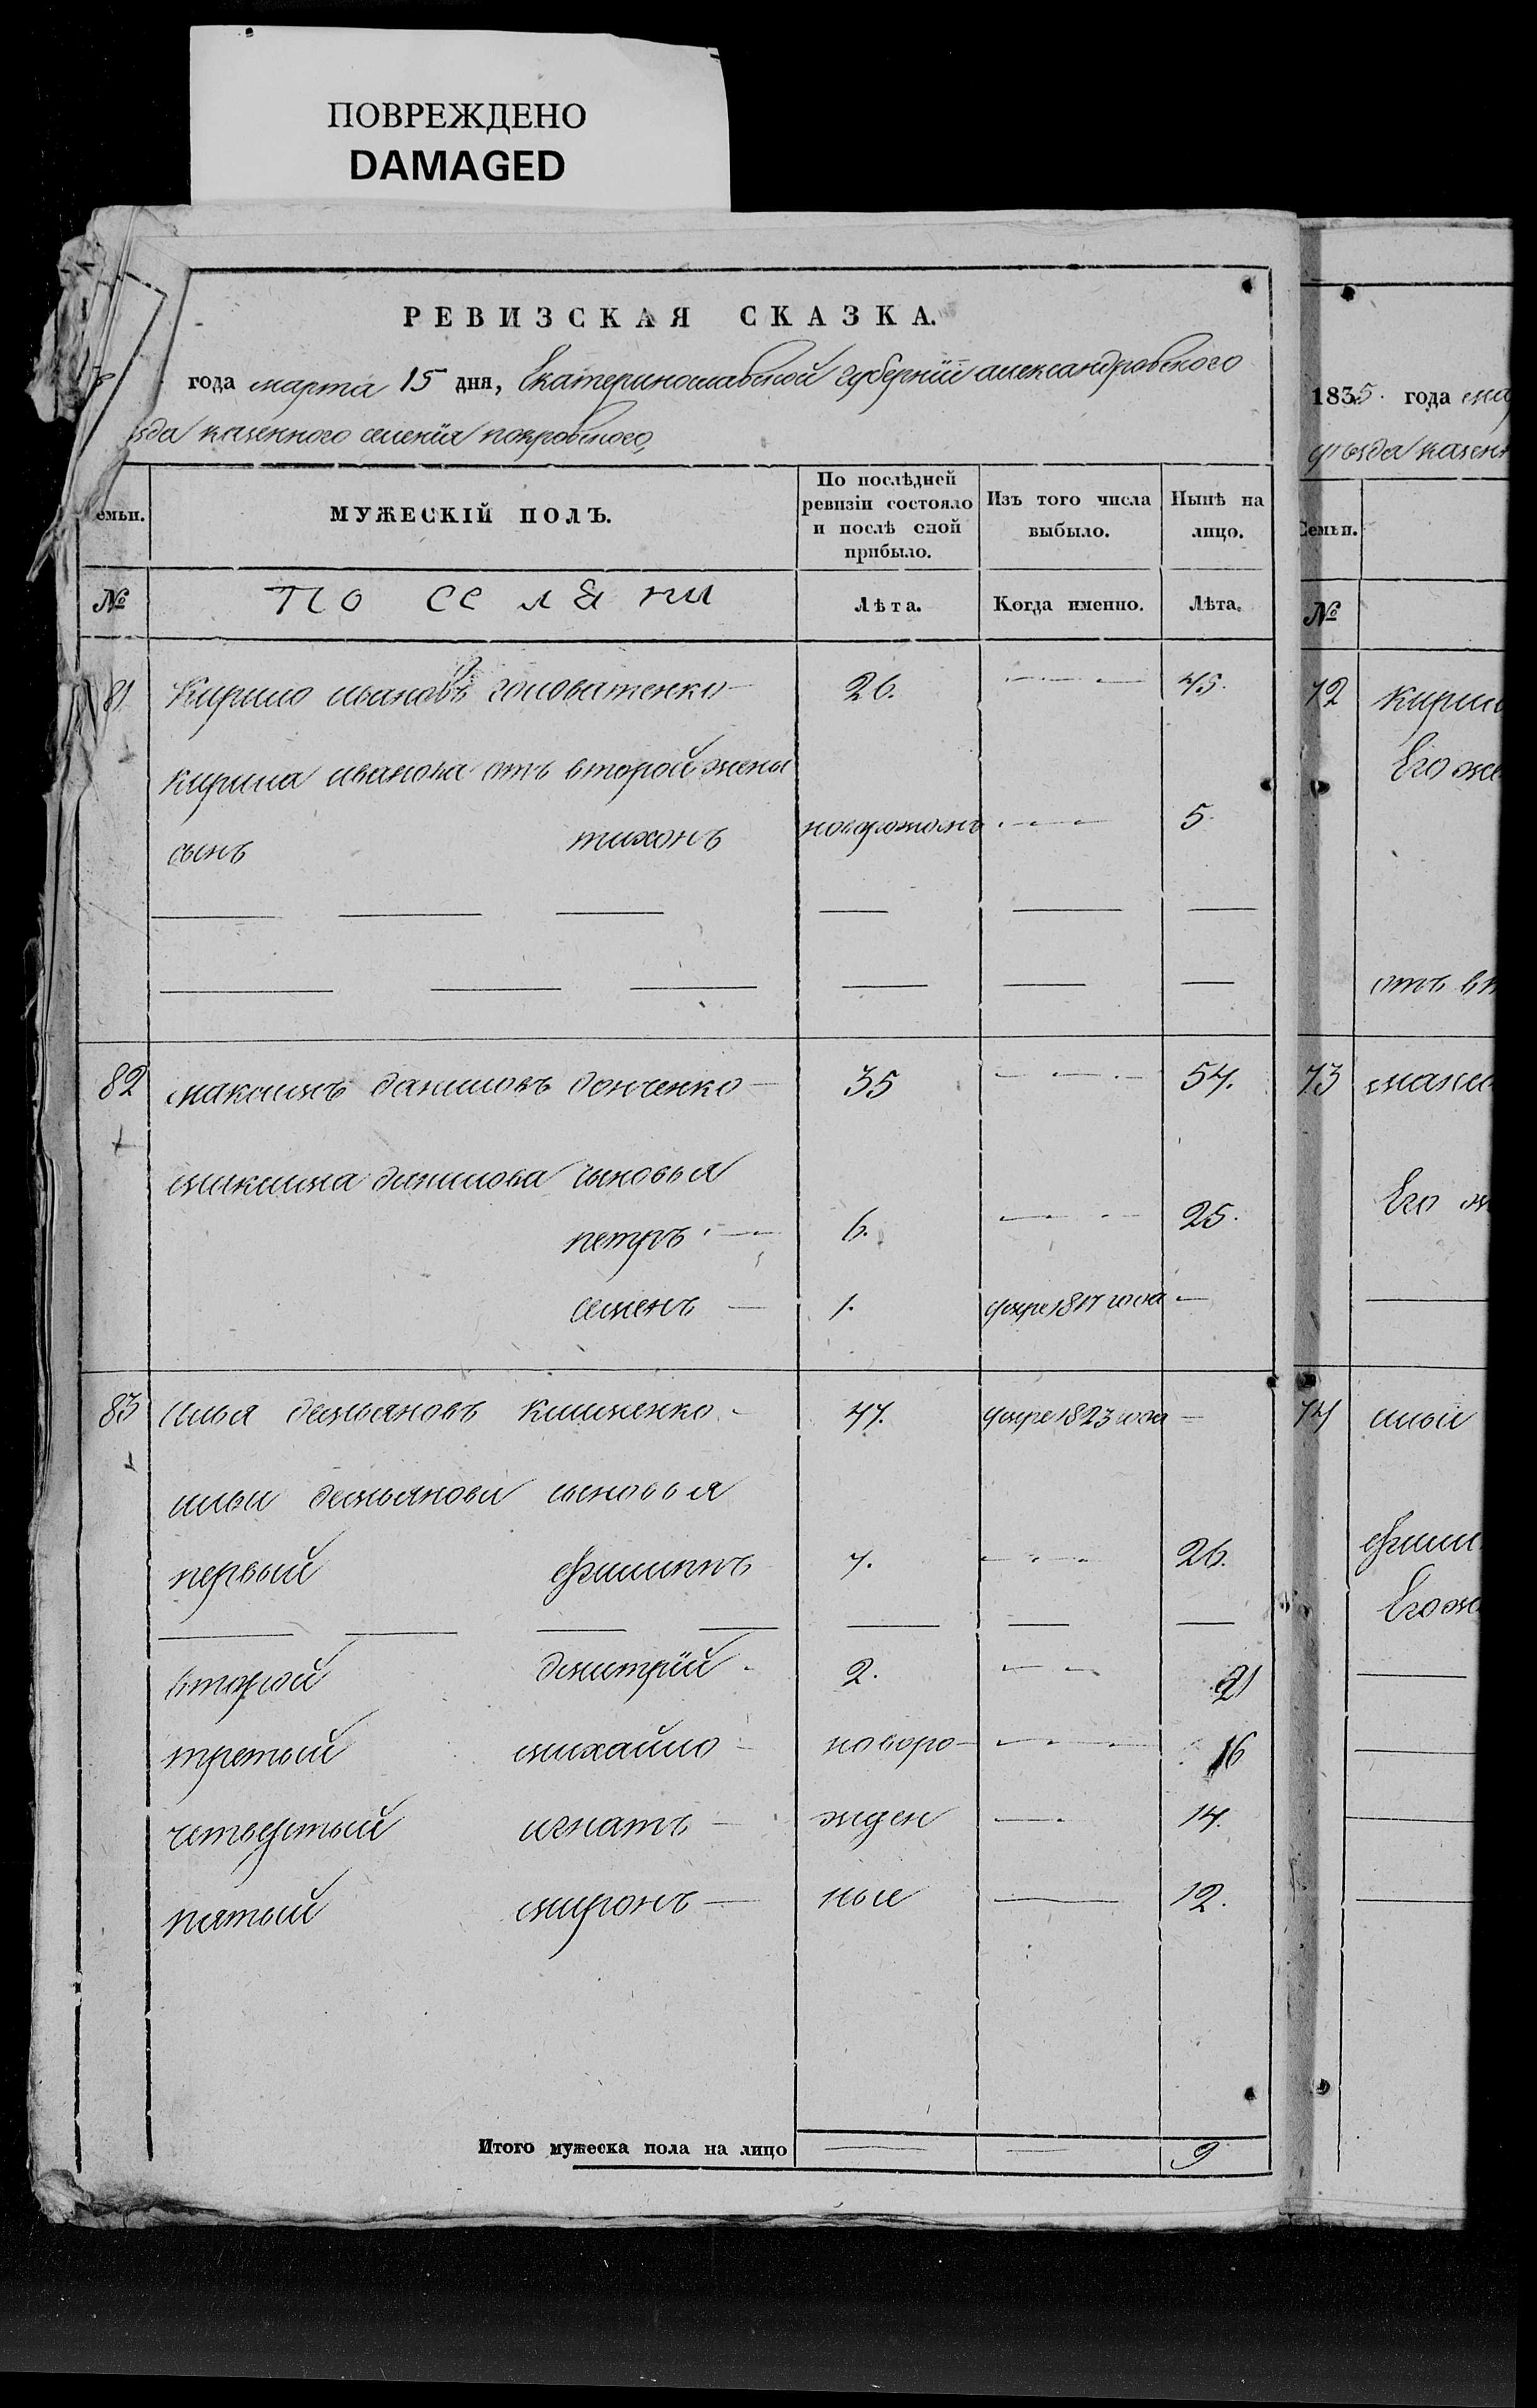 ПОВРЕЖДЕНО
DAMAGED
РЕВИЗСКАЯ СКАЗКА.
года марта 15 дня, Екатеринославской губерніи александровского
зда казенного селенія покровского,
емьи. МУЖЕСКІЙ ПОЛЪ. По послѣдней ревизіи состояло и послѣ оной прибыло. Изъ того числа выбыло. Нынѣ на лицо.
№ поселяни Лѣта. Когда именно. Лѣта.
81 Кирило ивановъ головатенко 26. 45.
кирила иванова отъ второй жены
сынъ тихонъ новорожонъ 5.
82 максимъ даниловъ донченко 35 54.
максима данилова сыновья
петръ 6. 25.
семенъ 1. умре 1817 года
83 илья демьяновъ клименко 47. умре 1823 года
ильи демьянова сыновья
первый филиппъ 7. 26.
второй дмитрій 2. 21
третий михайло новоро 16
четвертый игнатъ жден 14.
пятый миронъ ные 12.
Итого мужеска пола на лицо 9
1835. года мар
уезда казенн
Семьи.
№
72 кирил
Его же
отъ вт
73 макси
Его ж
74 ильи
филип
Его же